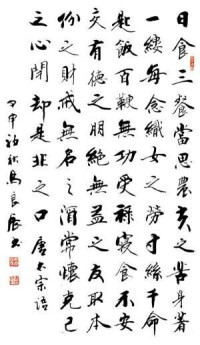 日食三餐當思農夫之苦身著
一縷每念織女之勞寸絲千命
匙飯百鞭無功受祿寢食不安
交有德之朋絕無益之友取本
份之財戒無名之酒常懷克己
之心閉却是非之口唐太宗語
丙申初秋馬良書